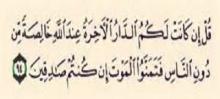 قُلْ إِن كَانَتْ لَكُمُ ٱلدَّارُ ٱلْأَخِرَةُ عِندَ ٱللَّهِ خَالِصَةً مِّن
دُونِ ٱلنَّاسِ فَتَمَنَّوُا۟ ٱلْمَوْتَ إِن كُنتُمْ صَـٰدِقِينَ ٩٤